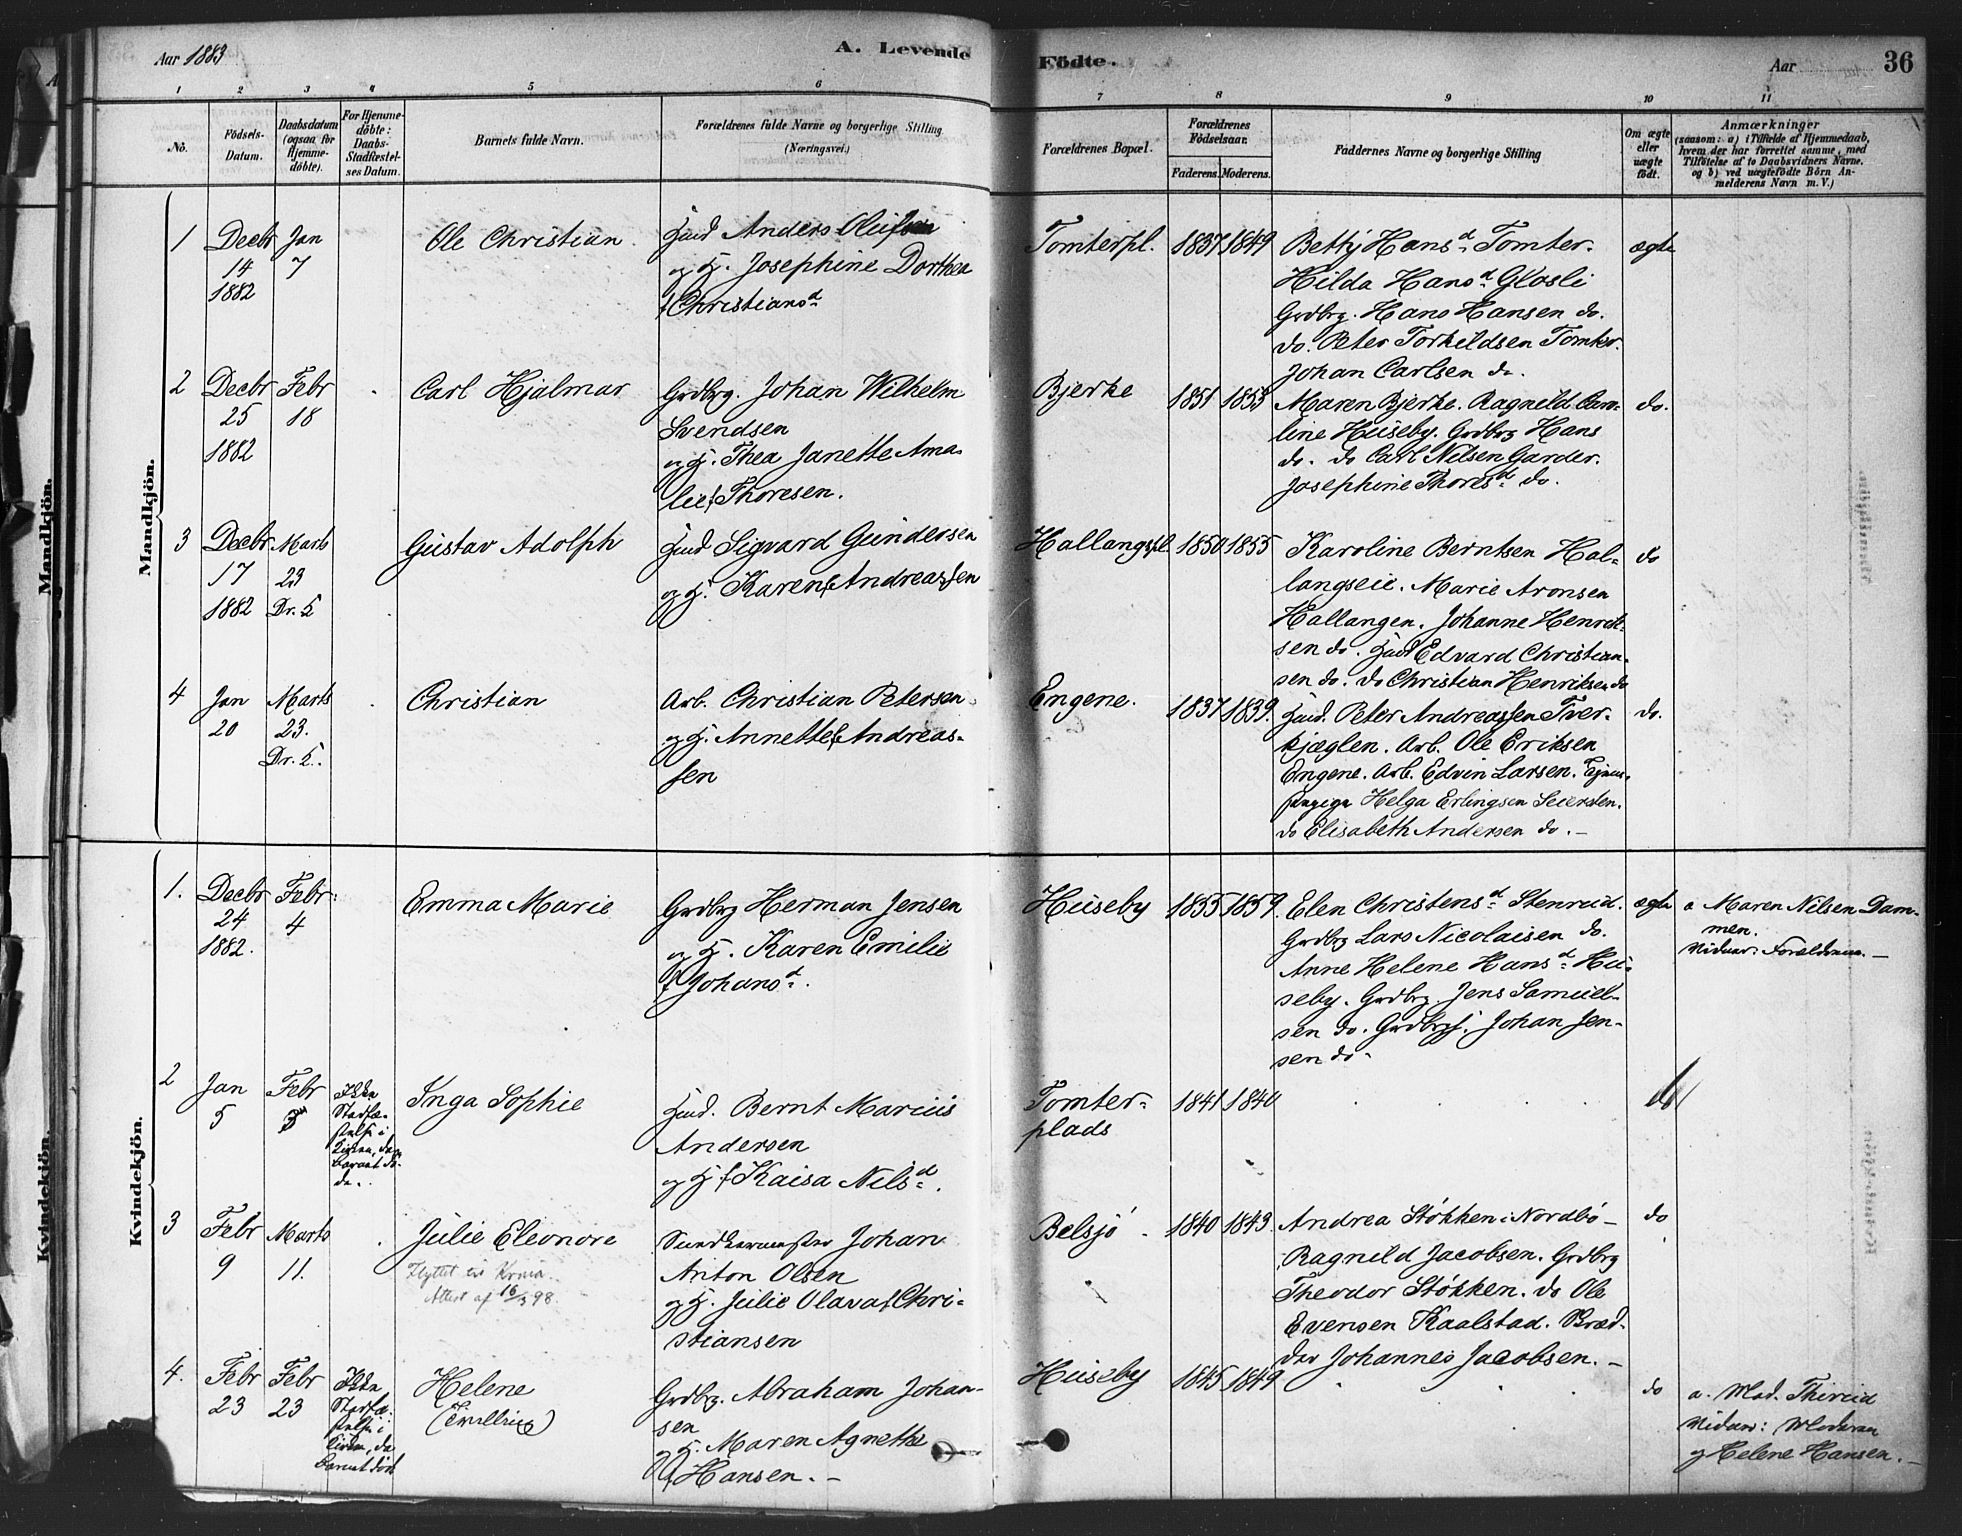 Aar 1883
A. Levende
Födte.
Aar
36
1 2 3 4 5 6 7 8 9 10 11
No.
Födsels-
Datum.
Daabsdatum
(ogsaa for
Hjemme-
döbte).
For Hjemme-
döbte:
Daabs-
Stadfæstel-
ses Datum.
Barnets fulde Navn.
Forældrenes fulde Navne og borgerlige Stilling
(Næringsvei.)
Forældrenes Bopæl.
Forældrenes
Födselsaar.
Faderens. Moderens.
Faddernes Navne og borgerlige Stilling
Om ægte
eller
uægte
födt.
Anmærkninger
(saasom: a) i Tilfælde af Hjemmedaab,
hvem der har forrettet samme, med
Tilföielse af to Daabsvidners Navne.
og b) ved uægtefödte Börn An-
melderens Navn m. V.)
Mandkjön.
1
Decbr
14
1882
Jan
7
Ole Christian
Huusmd Anders Olufsen
og H. Josephine Dorthea
f Christiansd
Tomterpl.
1837
1849
Betty Hansd Tomter.
Hilda Hansd Glosli
Grdbrg. Hans Hansen do.
do. Peter Torkildsen Tomter.
Johan Carlsen do.
ægte
2
Decbr
25
1882
Febr
18
Carl Hjalmar
Grdbrg. Johan Wilhelm
Svendsen
og H. Thea Janette Ama-
lie f Thoresen.
Bjerke
1851
1853
Maren Bjerke. Ragnild Caro-
line Huseby. Grdbrg Hans
do. do Carl Nilsen Garder.
Josephine Thoresd do.
do.
3
Decbr
17
1882
Marts
23
Dr. 5
Gustav Adolph
Sigvard Gundersen
og H. Karen f Andreassen
Hallangspl.
1850
1855
Karoline Berntsen Hal-
langseie. Marie Aronsen
Hallangen. Johanne Henrik-
sen do. Edvard Christian-
sen do. do Christian Henriksen do
do
4
Jan
20
Marts
23.
Dr. 5.
Christian
Arb. Christian Petersen
og H. Annette f Andreas-
sen
Engene.
1837
1839.
Peter Andreassen Tver-
kjæglen. Arb. Ole Eriksen
Engene. Arb. Edvin Larsen.
Helga Erlingsen Seiersten.
do Elisabeth Andersen do. –
do.
Kvindekjön.
1.
Decbr
24
1882.
Febr
4
Emma Marie
Grdbrg Herman Jensen
og H. Karen Emilie
f Johansd.
Huseby
1855
1859.
Elen Christensd Stenrud.
Grdbrg Lars Nicolaisen do.
Anne Helene Hansd Hu-
seby. Grdbrg. Jens Samuel-
sen do. Grdbrgs. Johan Jen-
sen do.
ægte
a Maren Nilsen Dam-
men.
Vidner: Forældrene. –
2
Jan
5
Febr
3
Ikke
Stadfæ-
stelse i
Kirken, da
Barnet dö-
de.
Inga Sophie
Bernt Marius
Andersen
og H f Kaisa Nilsd.
Tomter-
plads
1841
1840
do
3
Febr
9
Marts
11.
Julie Eleonore
Flyttet til Kr.nia.
Attest af 16/3 98.
Johan
Anton Olsen
og H. Julie Olava f Chri-
stiansen
Belsjö
1840
1843.
Andrea Stökken i Nordbö –
Ragnild Jacobsen. Grdbrg
Theodor Stökken. do Ole
Evensen Kaalstad. Brød-
der Johannes Jacobsen. –
do
4.
Febr
23
Febr
23
Ikke
Stadfæ-
stelse i
Kirken, da
Barnet död
Helene
(Tvilling)
Grdbrg. Abraham Johan-
sen
og H. Maren Agnethe
f Hansen. –
Huseby
1845
1849
do
a. Mad. Thirud
Vidner: Moderen
og Helene Hansen. –